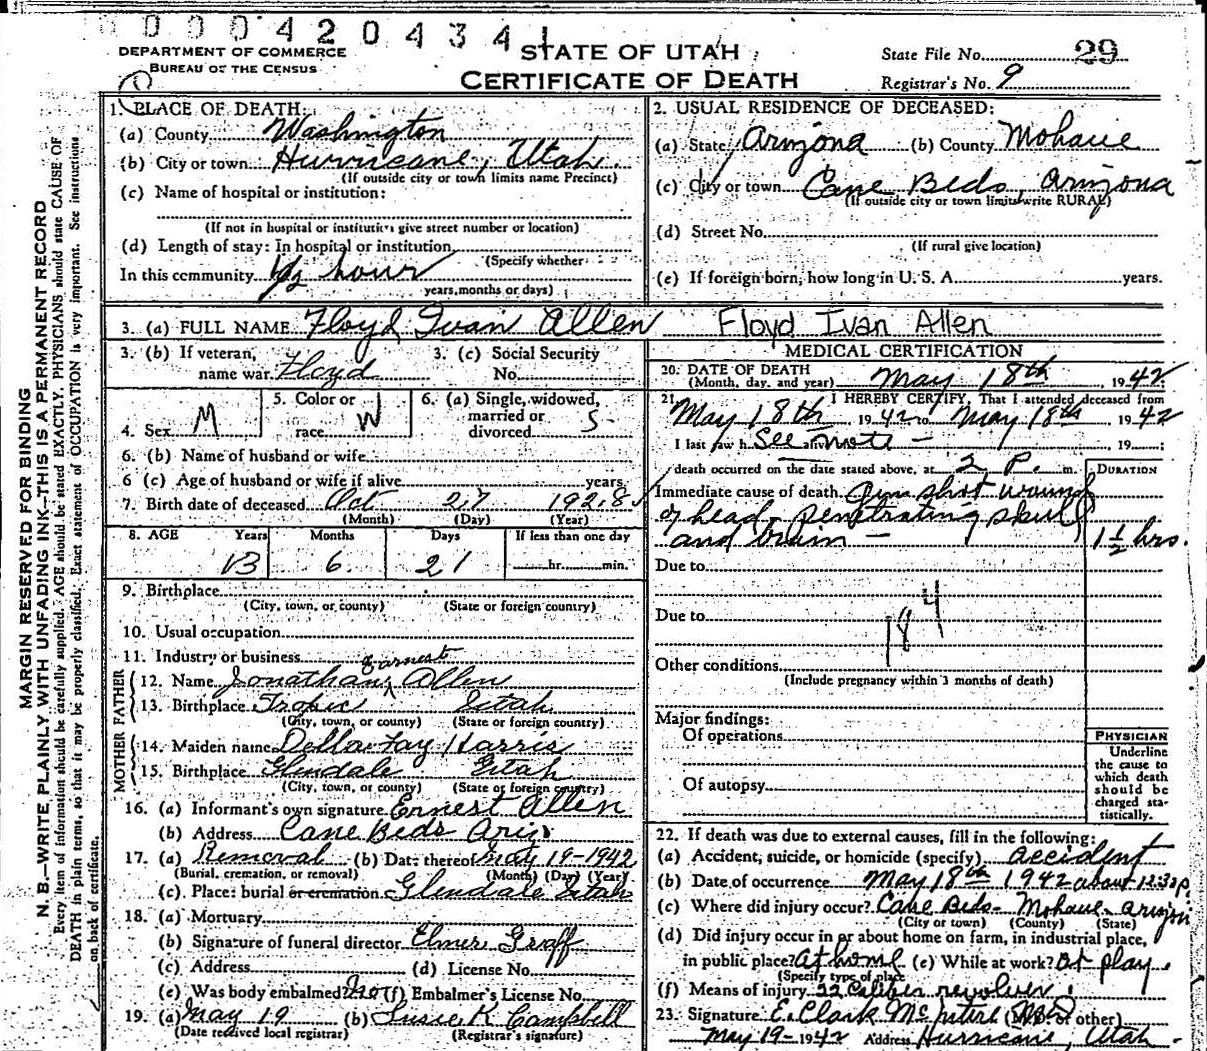 0000420434
DEPARTMENT OF COMMERCE
BUREAU OF THE CENSUS
STATE OF UTAH
CERTIFICATE OF DEATH
State File No. 29
Registrar's No. 9
MARGIN RESERVED FOR BINDING
N. B.—WRITE PLAINLY WITH UNFADING INK—THIS IS A PERMANENT RECORD
Every item of information should be carefully supplied. AGE should be stated EXACTLY. PHYSICIANS should state CAUSE OF
DEATH in plain terms, so that it may be properly classified. Exact statement of OCCUPATION is very important. See instructions
on back of certificate.
1. PLACE OF DEATH:
(a) County Washington
(b) City or town Hurricane, Utah.
(If outside city or town limits name Precinct)
(c) Name of hospital or institution:
(If not in hospital or institution give street number or location)
(d) Length of stay: In hospital or institution
(Specify whether
In this community 1/2 hour
years, months or days)
2. USUAL RESIDENCE OF DECEASED:
(a) State Arizona (b) County Mohave
(c) City or town Cane Beds, Arizona
(If outside city or town limits write RURAL)
(d) Street No.
(If rural give location)
(e) If foreign born, how long in U. S. A. years.
3. (a) FULL NAME Floyd Ivan Allen Floyd Ivan Allen
3. (b) If veteran, name war Floyd
3. (c) Social Security No.
4. Sex M
5. Color or race W
6. (a) Single, widowed, married or divorced S
6. (b) Name of husband or wife
6 (c) Age of husband or wife if alive years
7. Birth date of deceased Oct 27 1928
(Month) (Day) (Year)
8. AGE Years Months Days If less than one day
13 6 21 hr. min.
9. Birthplace
(City, town, or county) (State or foreign country)
10. Usual occupation
11. Industry or business
FATHER
12. Name Jonathan Earnest Allen
13. Birthplace Tropic Utah
(City, town, or county) (State or foreign country)
MOTHER
14. Maiden name Della Fay Harris
15. Birthplace Glendale Utah
(City, town, or county) (State or foreign country)
16. (a) Informant's own signature Ernest Allen
(b) Address Cane Beds Ariz
17. (a) Removal (b) Date thereof May 19-1942
(Burial, cremation, or removal) (Month) (Day) (Year)
(c) Place: burial or cremation Glendale Utah
18. (a) Mortuary
(b) Signature of funeral director Elmer Graff
(c) Address (d) License No.
(e) Was body embalmed No (f) Embalmer's License No.
19. (a) May 19 (b) Susie K Campbell
(Date received local registrar) (Registrar's signature)
MEDICAL CERTIFICATION
20. DATE OF DEATH
(Month, day, and year) May 18th, 1942
21. I HEREBY CERTIFY, That I attended deceased from
May 18th 1942 to May 18th 1942
I last saw h alive See note - 19
death occurred on the date stated above, at 2 P. m.
DURATION
Immediate cause of death Gun shot wound
of head - penetrating skull
and brain - 1 1/2 hrs.
Due to
Due to
184
Other conditions
(Include pregnancy within 3 months of death)
Major findings:
Of operations
Of autopsy
PHYSICIAN
Underline
the cause to
which death
should be
charged sta-
tistically.
22. If death was due to external causes, fill in the following:
(a) Accident, suicide, or homicide (specify) accident
(b) Date of occurrence May 18th 1942 about 12:30 p.
(c) Where did injury occur? Cane Beds - Mohave - Arizona
(City or town) (County) (State)
(d) Did injury occur in or about home on farm, in industrial place,
in public place? At home (e) While at work? at play.
(Specify type of place
(f) Means of injury 22 Caliber revolver.
23. Signature E. Clark McIntire (M.D. or other)
May 19-1942 Address Hurricane, Utah